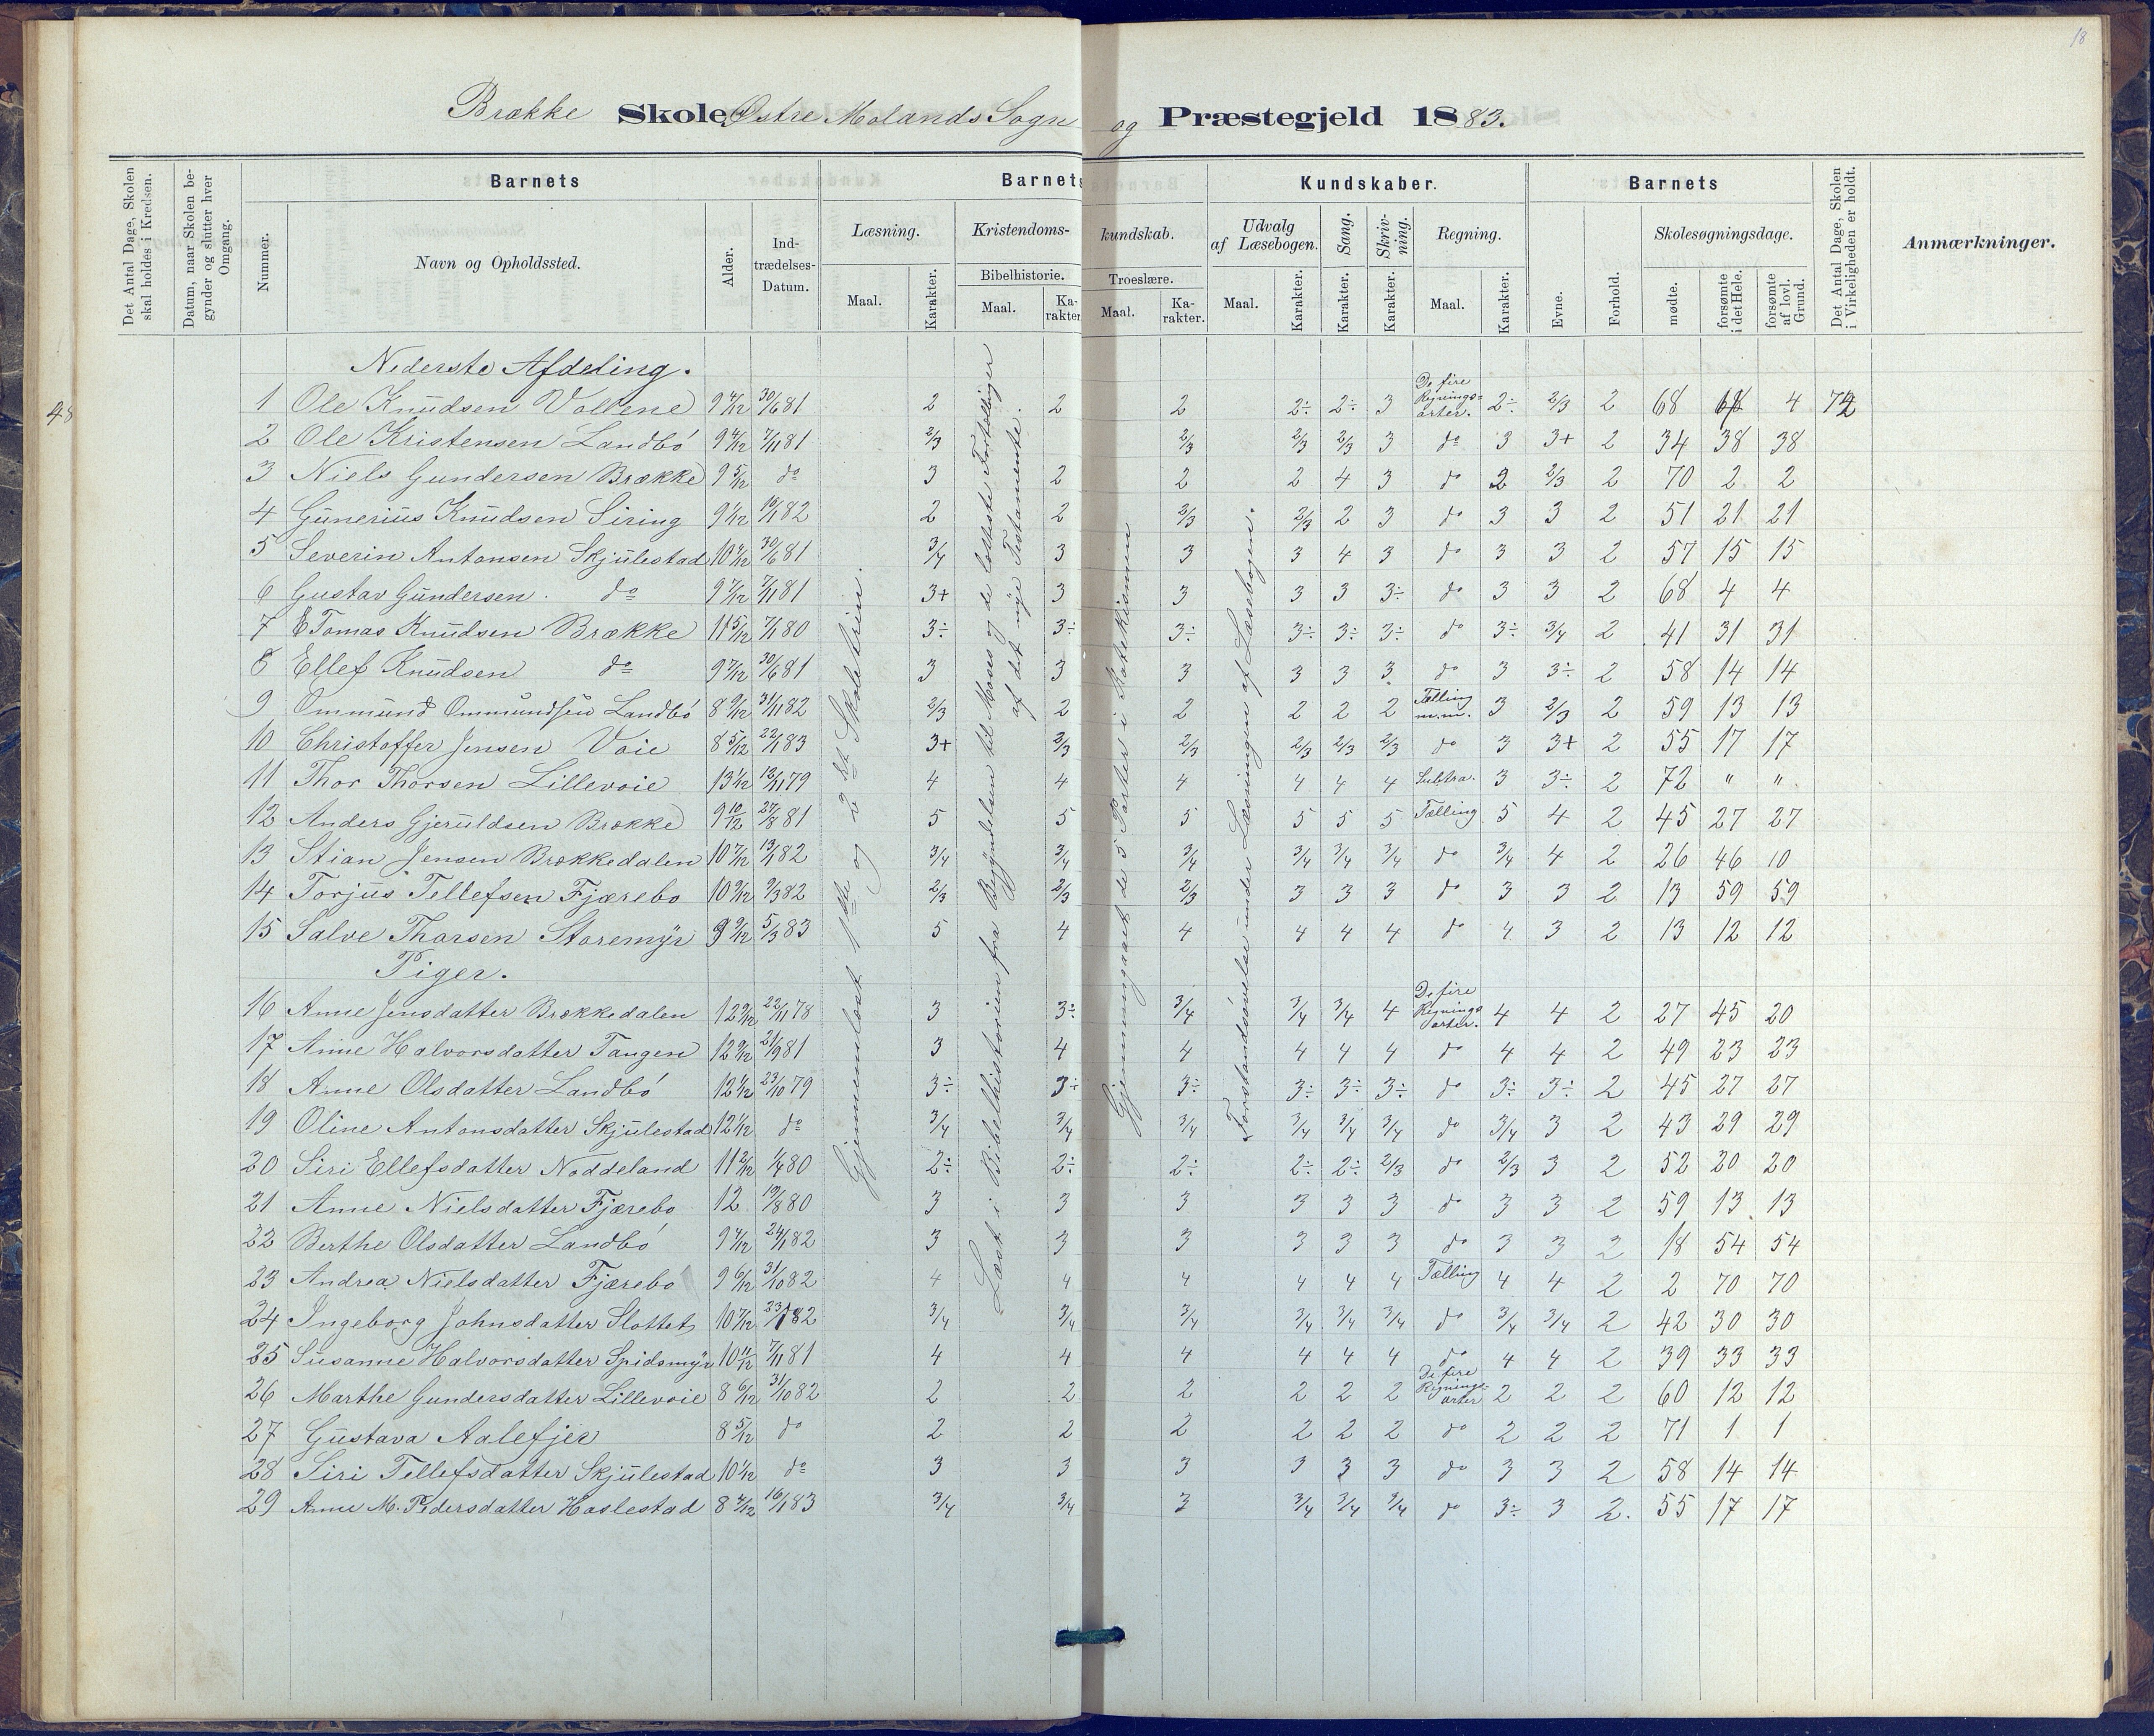 18
48
Brække Skole Østre Molands Sogn og Præstegjeld 1883.
Det Antal Dage, Skolen skal holdes i Kredsen.
Datum, naar Skolen begynder og slutter hver Omgang.
Barnets
Nummer.
Navn og Opholdssted.
Alder.
Ind-
trædelses-
Datum.
Barnets Kundskaber.
Læsning.
Maal.
Karakter.
Kristendoms-kundskab.
Bibelhistorie.
Maal.
Ka-
rakter.
Troeslære.
Maal.
Ka-
rakter.
Udvalg
af Læsebogen.
Maal.
Karakter.
Sang.
Karakter.
Skriv-
ning.
Karakter.
Regning.
Maal.
Karakter.
Barnets
Evne.
Forhold.
Skolesøgningsdage.
mødte.
forsømte
i det Hele.
forsømte
af lovl.
Grund.
Det Antal Dage, Skolen
i Virkeligheden er holdt.
Anmærkninger.
Nederste Afdeling.
1 Ole Knudsen Vollene 9 4/12 30/6 81 2 2 2 2÷ 2÷ 3 De fire Regnings-arter. 2÷ 2/3 2 68 4 72
2 Ole Kristensen Landbö 9 4/12 7/11 81 2/3 2/3 2/3 2/3 3 do 3 3+ 2 34 38 38
3 Niels Gundersen Brække 9 5/12 do 3 2 2 2 4 3 do 2 2/3 2 70 2 2
4 Gunerius Knudsen Siring 9 1/12 82 2 2 2/3 2/3 2 3 do 3 3 2 51 21 21
5 Severin Antonsen Skjulestad 10 30/6 81 3/4 3 3 3 4 3 do 3 3 2 57 15 15
6 Gustav Gundersen. do 9 7/12 7/11 81 3+ 3 3 3 3 3÷ do 3 3 2 68 4 4
7 E Tomas Knudsen Brække 11 5/12 7/1 80 3÷ 3÷ 3÷ 3÷ 3÷ 3÷ do 3÷ 3/4 2 41 31 31
8 Ellef Knudsen do 9 7/12 30/6 81 3 3 3 3 3 3 do 3 3÷ 2 58 14 14
9 Ommund Ommundsen Landbö 8 9/12 31/11 82 2/3 2 2 2 2 2 Tælling m.m. 3 2/3 2 59 13 13
10 Christoffer Jensen Voie 8 5/12 22/1 83 3+ 2/3 2/3 2/3 2/3 2/3 do 3 3+ 2 55 17 17
11 Thor Thorsen Lillevoie 13 1/12 12/11 79 4 4 4 4 4 4 Subtra. 3 3÷ 2 72 " "
12 Anders Gjeruldsen Brække 9 10/12 27/8 81 5 5 5 5 5 5 Tælling 5 4 2 45 27 27
13 Stian Jensen Brækkedalen 10 7/12 13/1 82 3/4 3/4 3/4 3/4 3/4 3/4 do 3/4 4 2 26 46 10
14 Torjus Tellefsen Fjærebo 10 9/12 9/3 82 2/3 2/3 2/3 3 3 3 do 3 3 2 13 59 59
15 Salve Thorsen Storemyr 9 9/12 5/3 83 5 4 4 4 4 4 do 4 3 2 13 12 12
Piger.
16 Anne Jensdatter Brækkedalen 12 9/12 22/11 78 3 3÷ 3/4 3/4 3/4 4 De fire Regnings arter. 4 4 2 27 45 20
17 Anne Halvorsdatter Tangen 12 9/12 21/9 81 3 4 4 4 4 4 do 4 4 2 49 23 23
18 Anne Olsdatter Landbö 12 1/12 23/10 79 3÷ 3÷ 3÷ 3÷ 3÷ 3÷ do 3÷ 3÷ 2 45 27 27
19 Oline Antonsdatter Skjulestad 12 1/12 do 3/4 3/4 3/4 3/4 3/4 3/4 do 3/4 3 2 43 29 29
20 Siri Ellefsdatter Noddeland 11 2/12 1/4 80 2÷ 2÷ 2÷ 2÷ 2÷ 2/3 do 2/3 3 2 52 20 20
21 Anne Nielsdatter Fjærebo 12 19/8 80 3 3 3 3 3 3 do 3 3 2 59 13 13
22 Berthe Olsdatter Landbö 9 4/12 24/1 82 3 3 3 3 3 3 do 3 3 2 18 54 54
23 Andrea Nielsdatter Fjærebo 9 6/12 31/10 82 4 4 4 4 4 4 Tælling 4 4 2 2 70 70
24 Ingeborg Johnsdatter Slottet 10 7/12 82 3/4 3/4 3/4 3/4 3/4 3/4 do 3/4 3/4 2 42 30 30
25 Susanne Halvorsdatter Spidsmyr 10 11/12 7/11 81 4 4 4 4 4 4 do 4 4 2 39 33 33
26 Marthe Gundersdatter Lillevoie 8 6/12 31/10 82 2 2 2 2 2 2 De fire Regnings-arter 2 2 2 60 12 12
27 Gustava Aalefjer 8 5/12 do 2 2 2 2 2 2 do 2 2 2 71 1 1
28 Siri Tellefsdatter Skjulestad 10 1/12 do 3 3 3 3 3 3 do 3 3 2 58 14 14
29 Anne M. Pedersdatter Haslestad 8 4/12 16/1 83 3/4 3/4 3 3/4 3/4 3/4 do 3÷ 3 2. 55 17 17
Gjennemlæst 1ste og 2det Skoletrin.
Læst i Bibelhistorien fra Begyndelsen til Moses og de letteste Fortællinger
af det nye Testamente.
Gjennemgaaet de 5 Parter i Katekismen
Forstandsøvelse under Læsningen af Læsebogen.